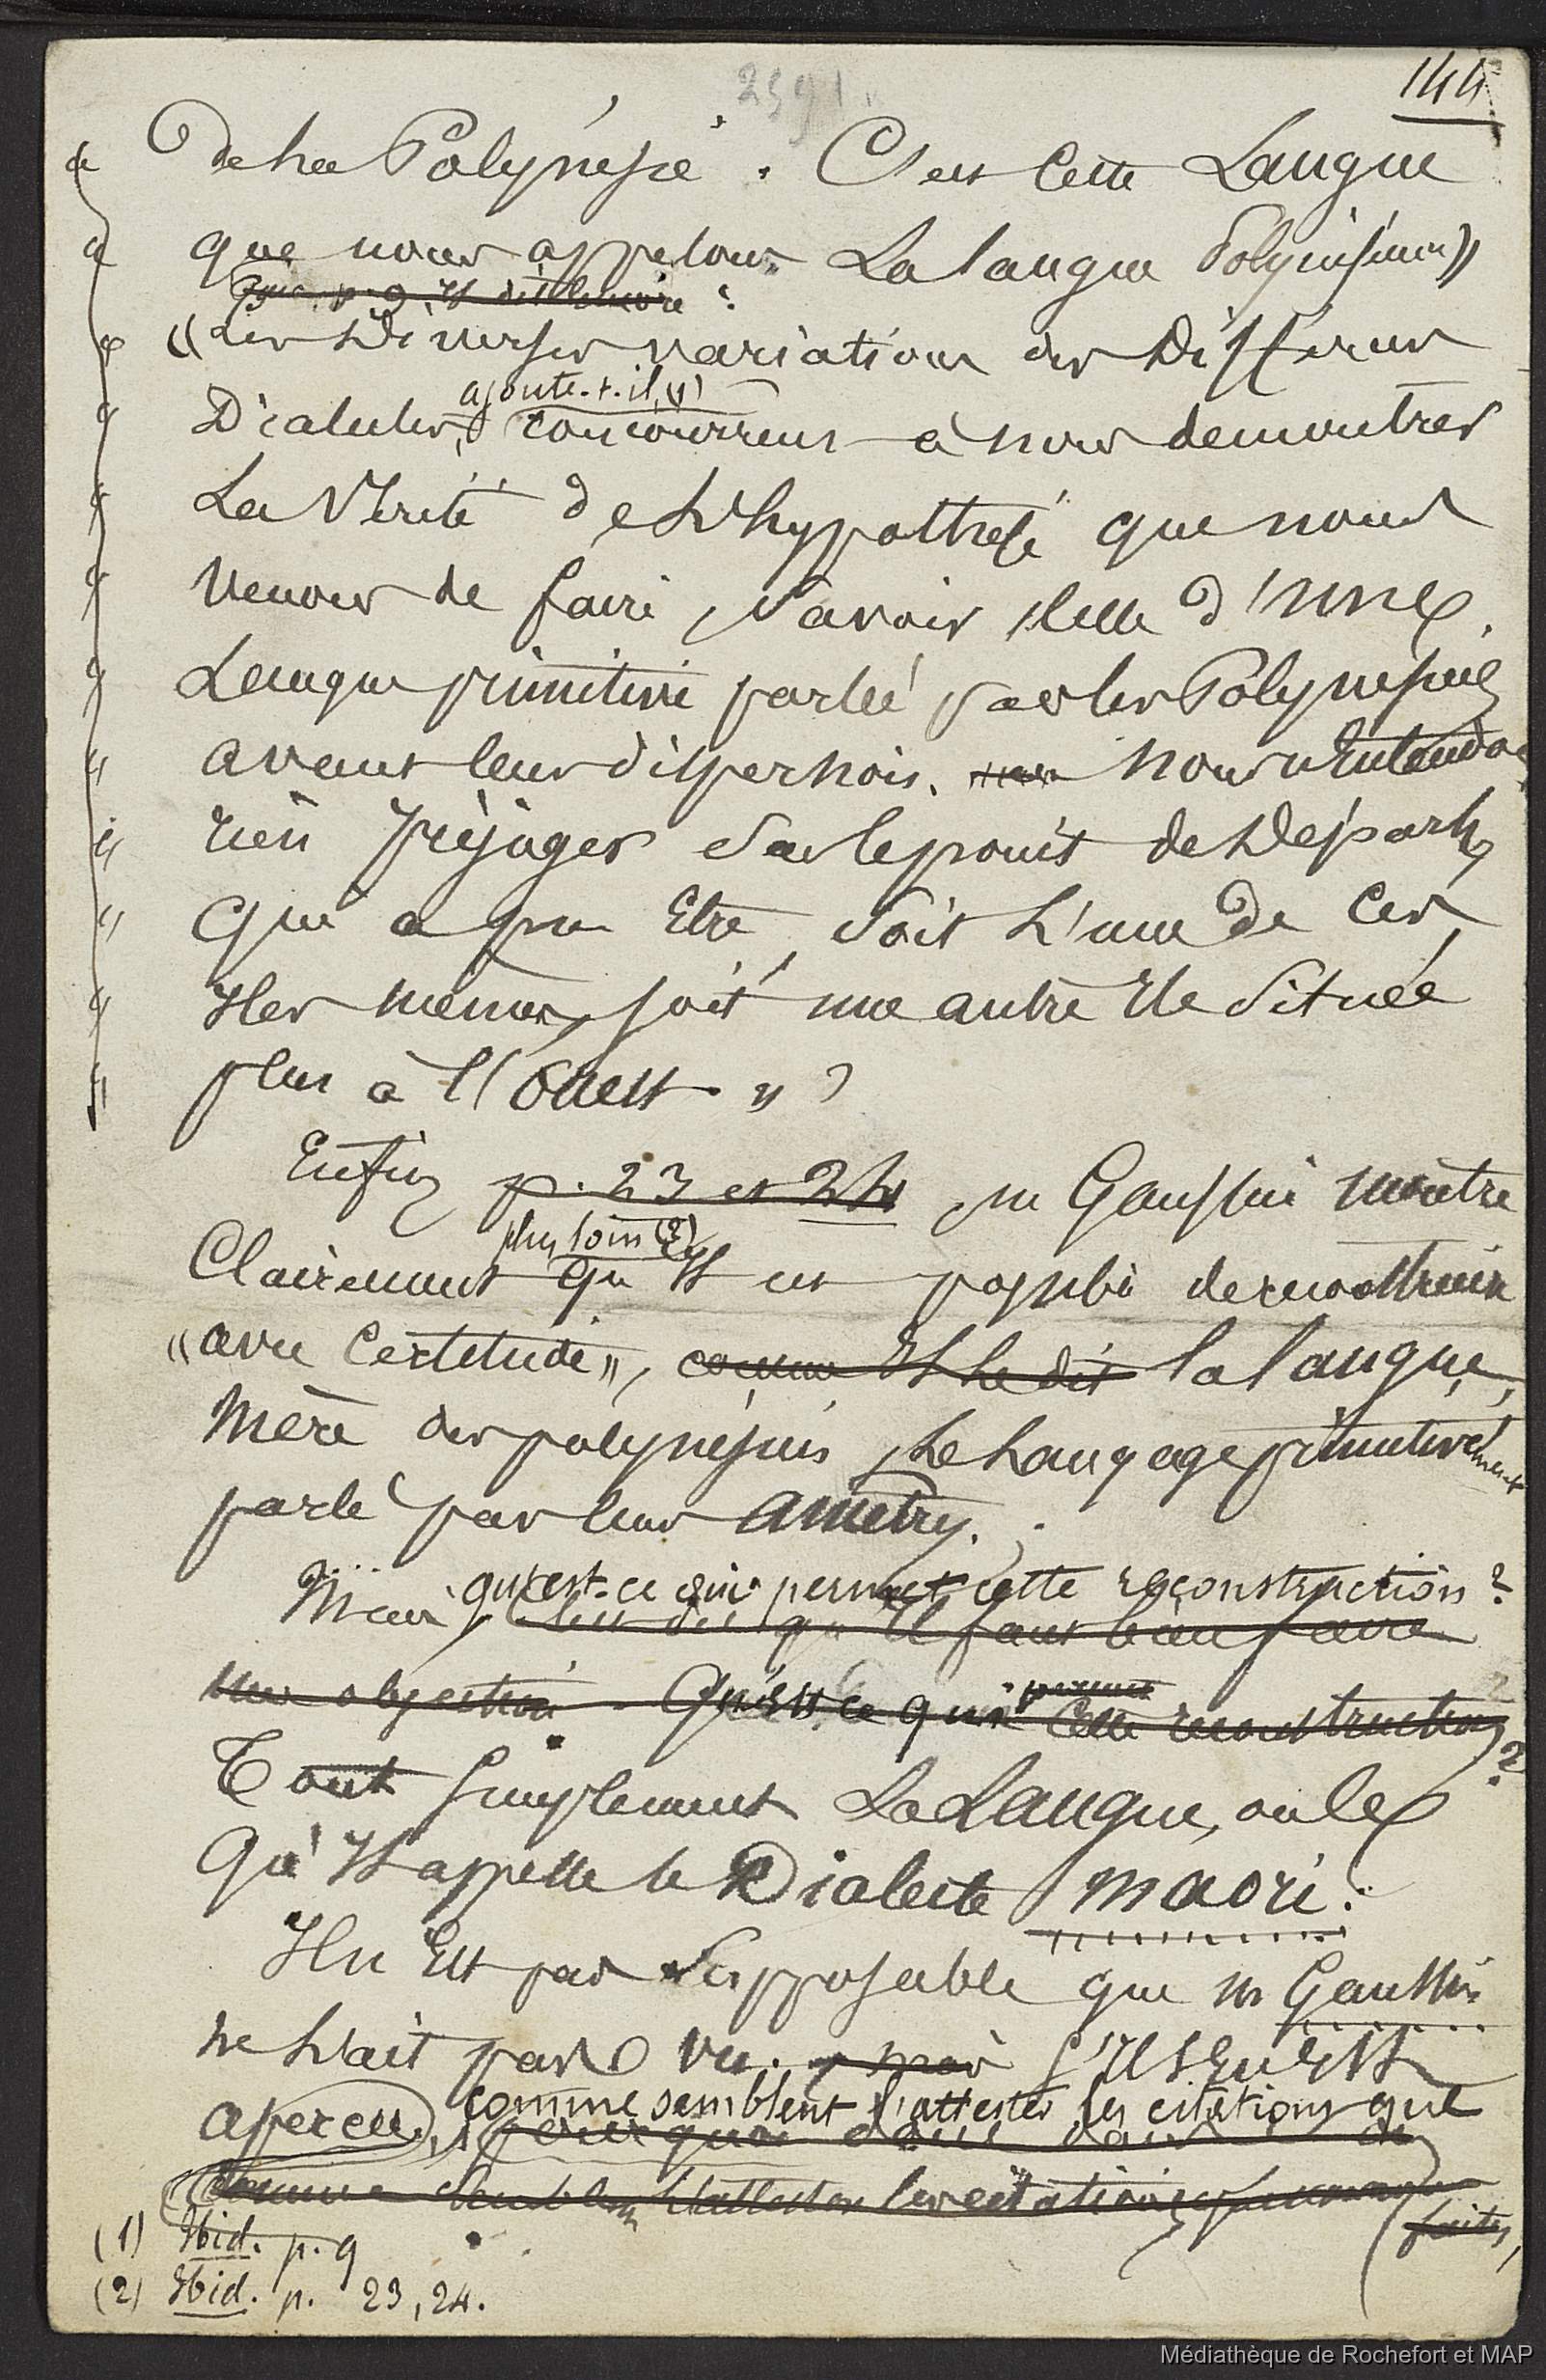 144
2591.
de la Polynesie. C'est cette Langue
que nous appelons La langue Polynésienne"
"Les Diverses variations des Differents
ajoute-t-il, (1)
Dialectes, concourrent à nous demontrer
La Verité de L'hypothese que nous
Venons de faire, Savoir celle d'une
Langue primitive parlée par les Polynesiens
avant leur dispersion. Nous n'entendons
rien préjuger sur le point de Départ,
qui a pu Etre, soit L'une de ces
Iles mêmes, soit une autre Ile située
plus à l'Ouest."
Enfin p. 23 et 24, m Gaussin montre
plus loin (2)
Clairement qu'Il est possible de reconstruire
"avec certitude", comme Il le dit la langue,
Mère des polynésiens, Le Langage primitivement
parlé par leurs ancetres.
qu'est-ce qui permet cette reconstruction?
Mais, qu'Il faut bien faire
une objection. Qu'est ce qui permet Cette reconstruction?
Tout Simplement La Langue, ou le
qu'Il appelle le Dialecte maori.
Il n'Est pas Supposable que m Gaussin
ne L'ait pas vu. S'Il s'en Est
comme semblent l'attester les citations que
apercu, pourquoi donc
Comme semblent L'attester les citations
faites,
(1) Ibid. p. 9
(2) Ibid. p. 23, 24.
Médiathèque de Rochefort et MAP